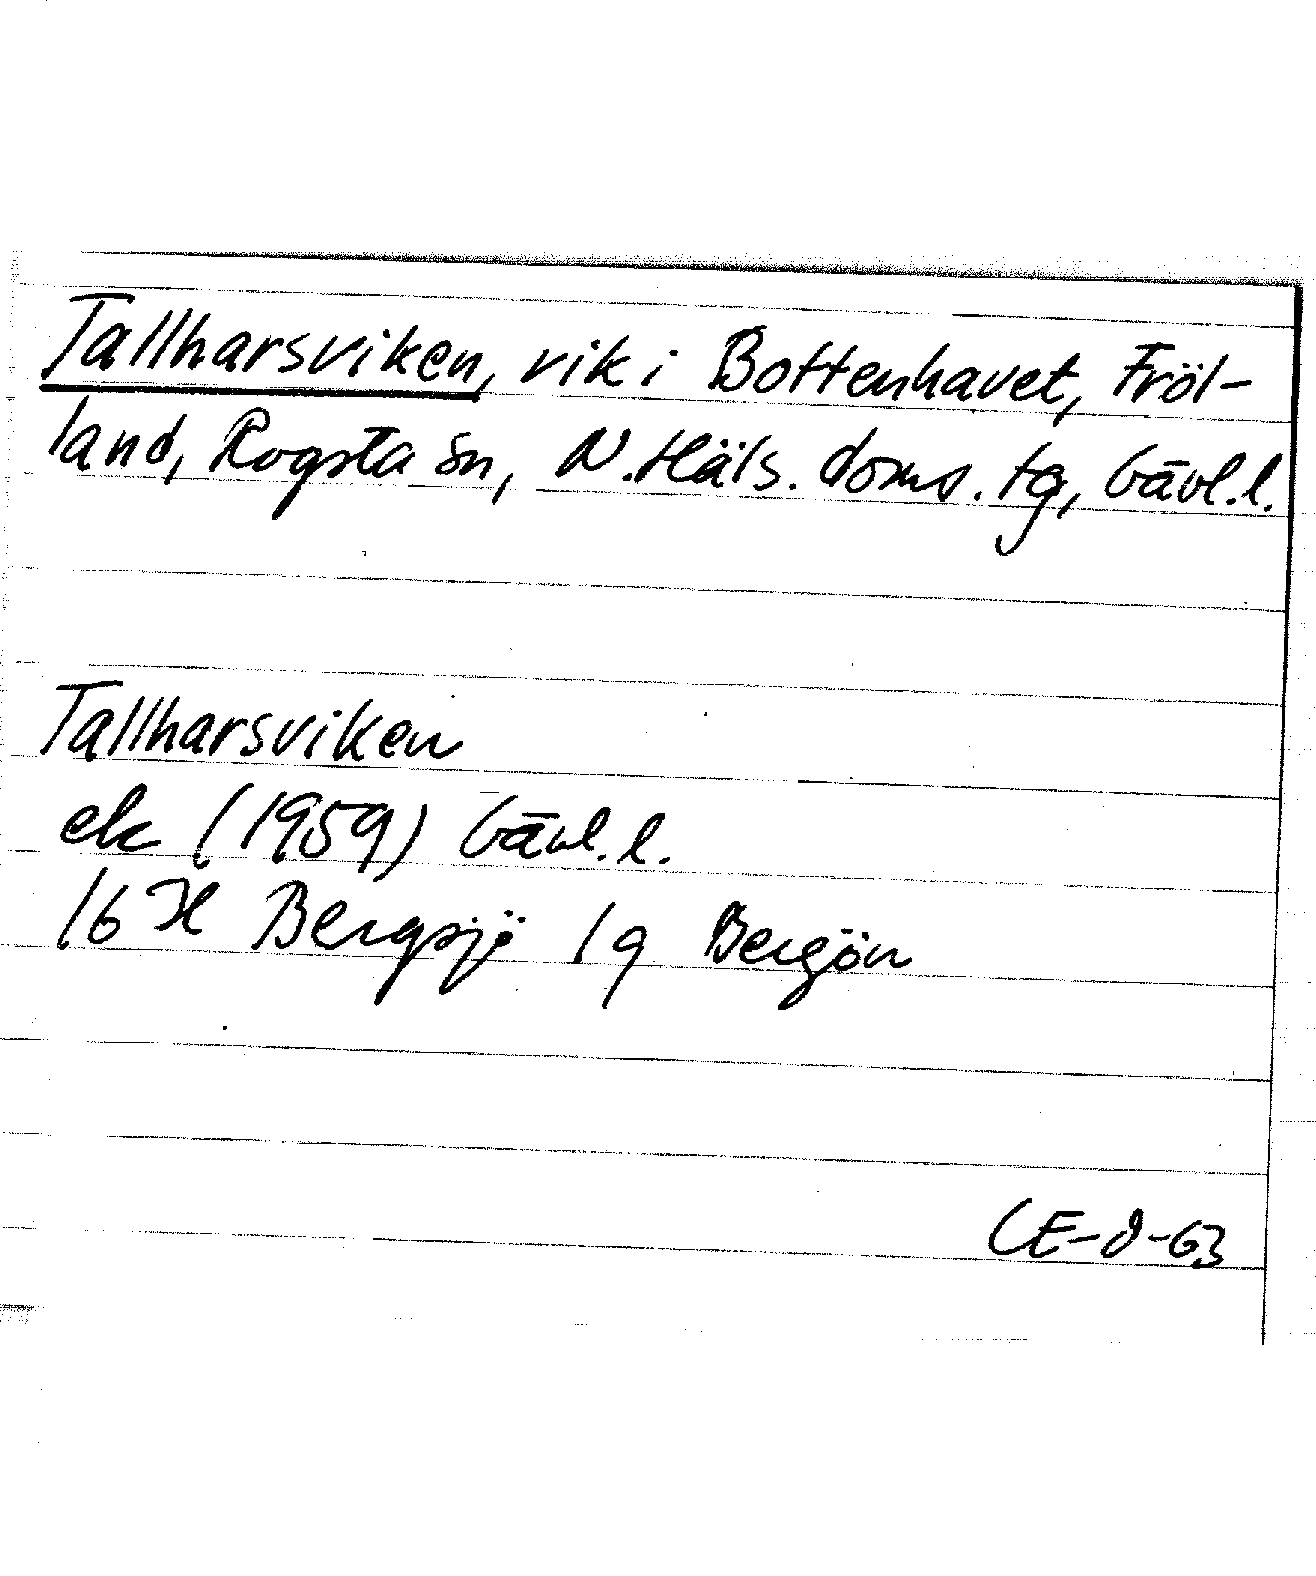 Tallharsviken, vik i Bottenhavet, Fröl-
land, Rogsta sn, N. Häls. doms. tg, Gävl. l.
Tallharsviken
ek (1959) Gävl. l.
16 H Bergsjö 1g Bergön
CE-8-63